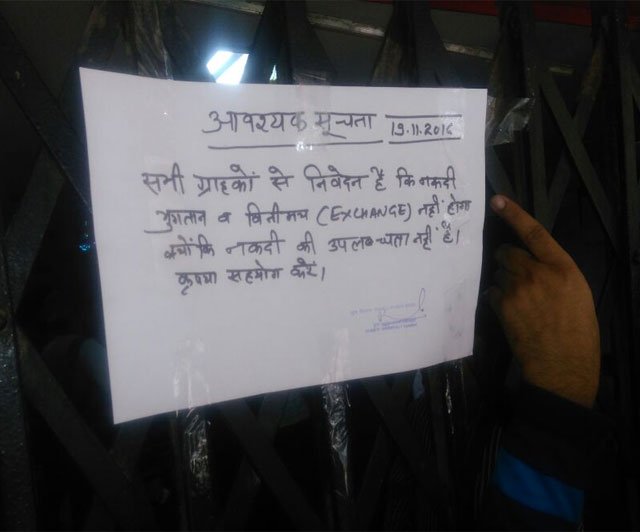 आवश्यक सूचना 19.11.2016
सभी ग्राहकों से निवेदन है कि नकदी
भुगतान व विनीमय (EXCHANGE) नहीं होगा
क्योंकि नकदी की उपलब्धता नहीं है।
कृपया सहयोग करें।